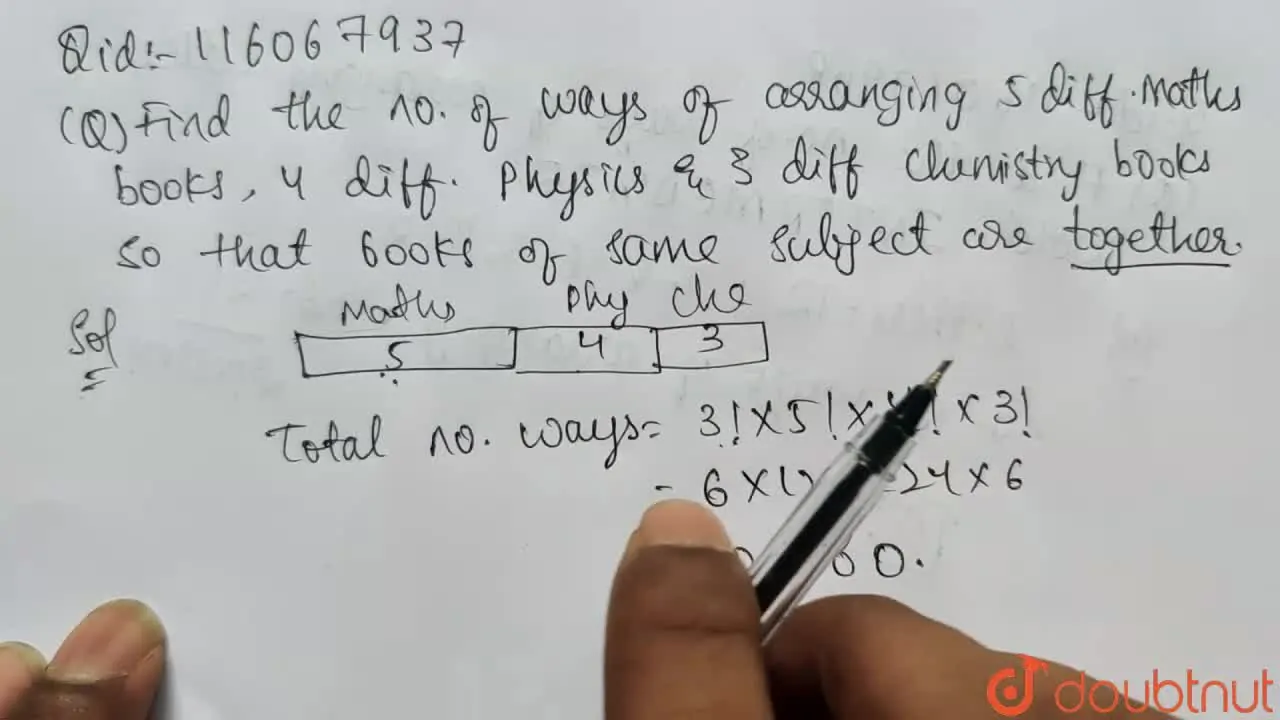 Qid:- 116067937
(Q) Find the no. of ways of arranging 5 diff. Maths
books, 4 diff. Physics & 3 diff Chemistry books
so that books of same subject are together.
Maths Phy Che
Sol
5 4 3
Total no. ways = 3! × 5! × ! × 3!
= 6 × 24 × 6
0 0.
doubtnut